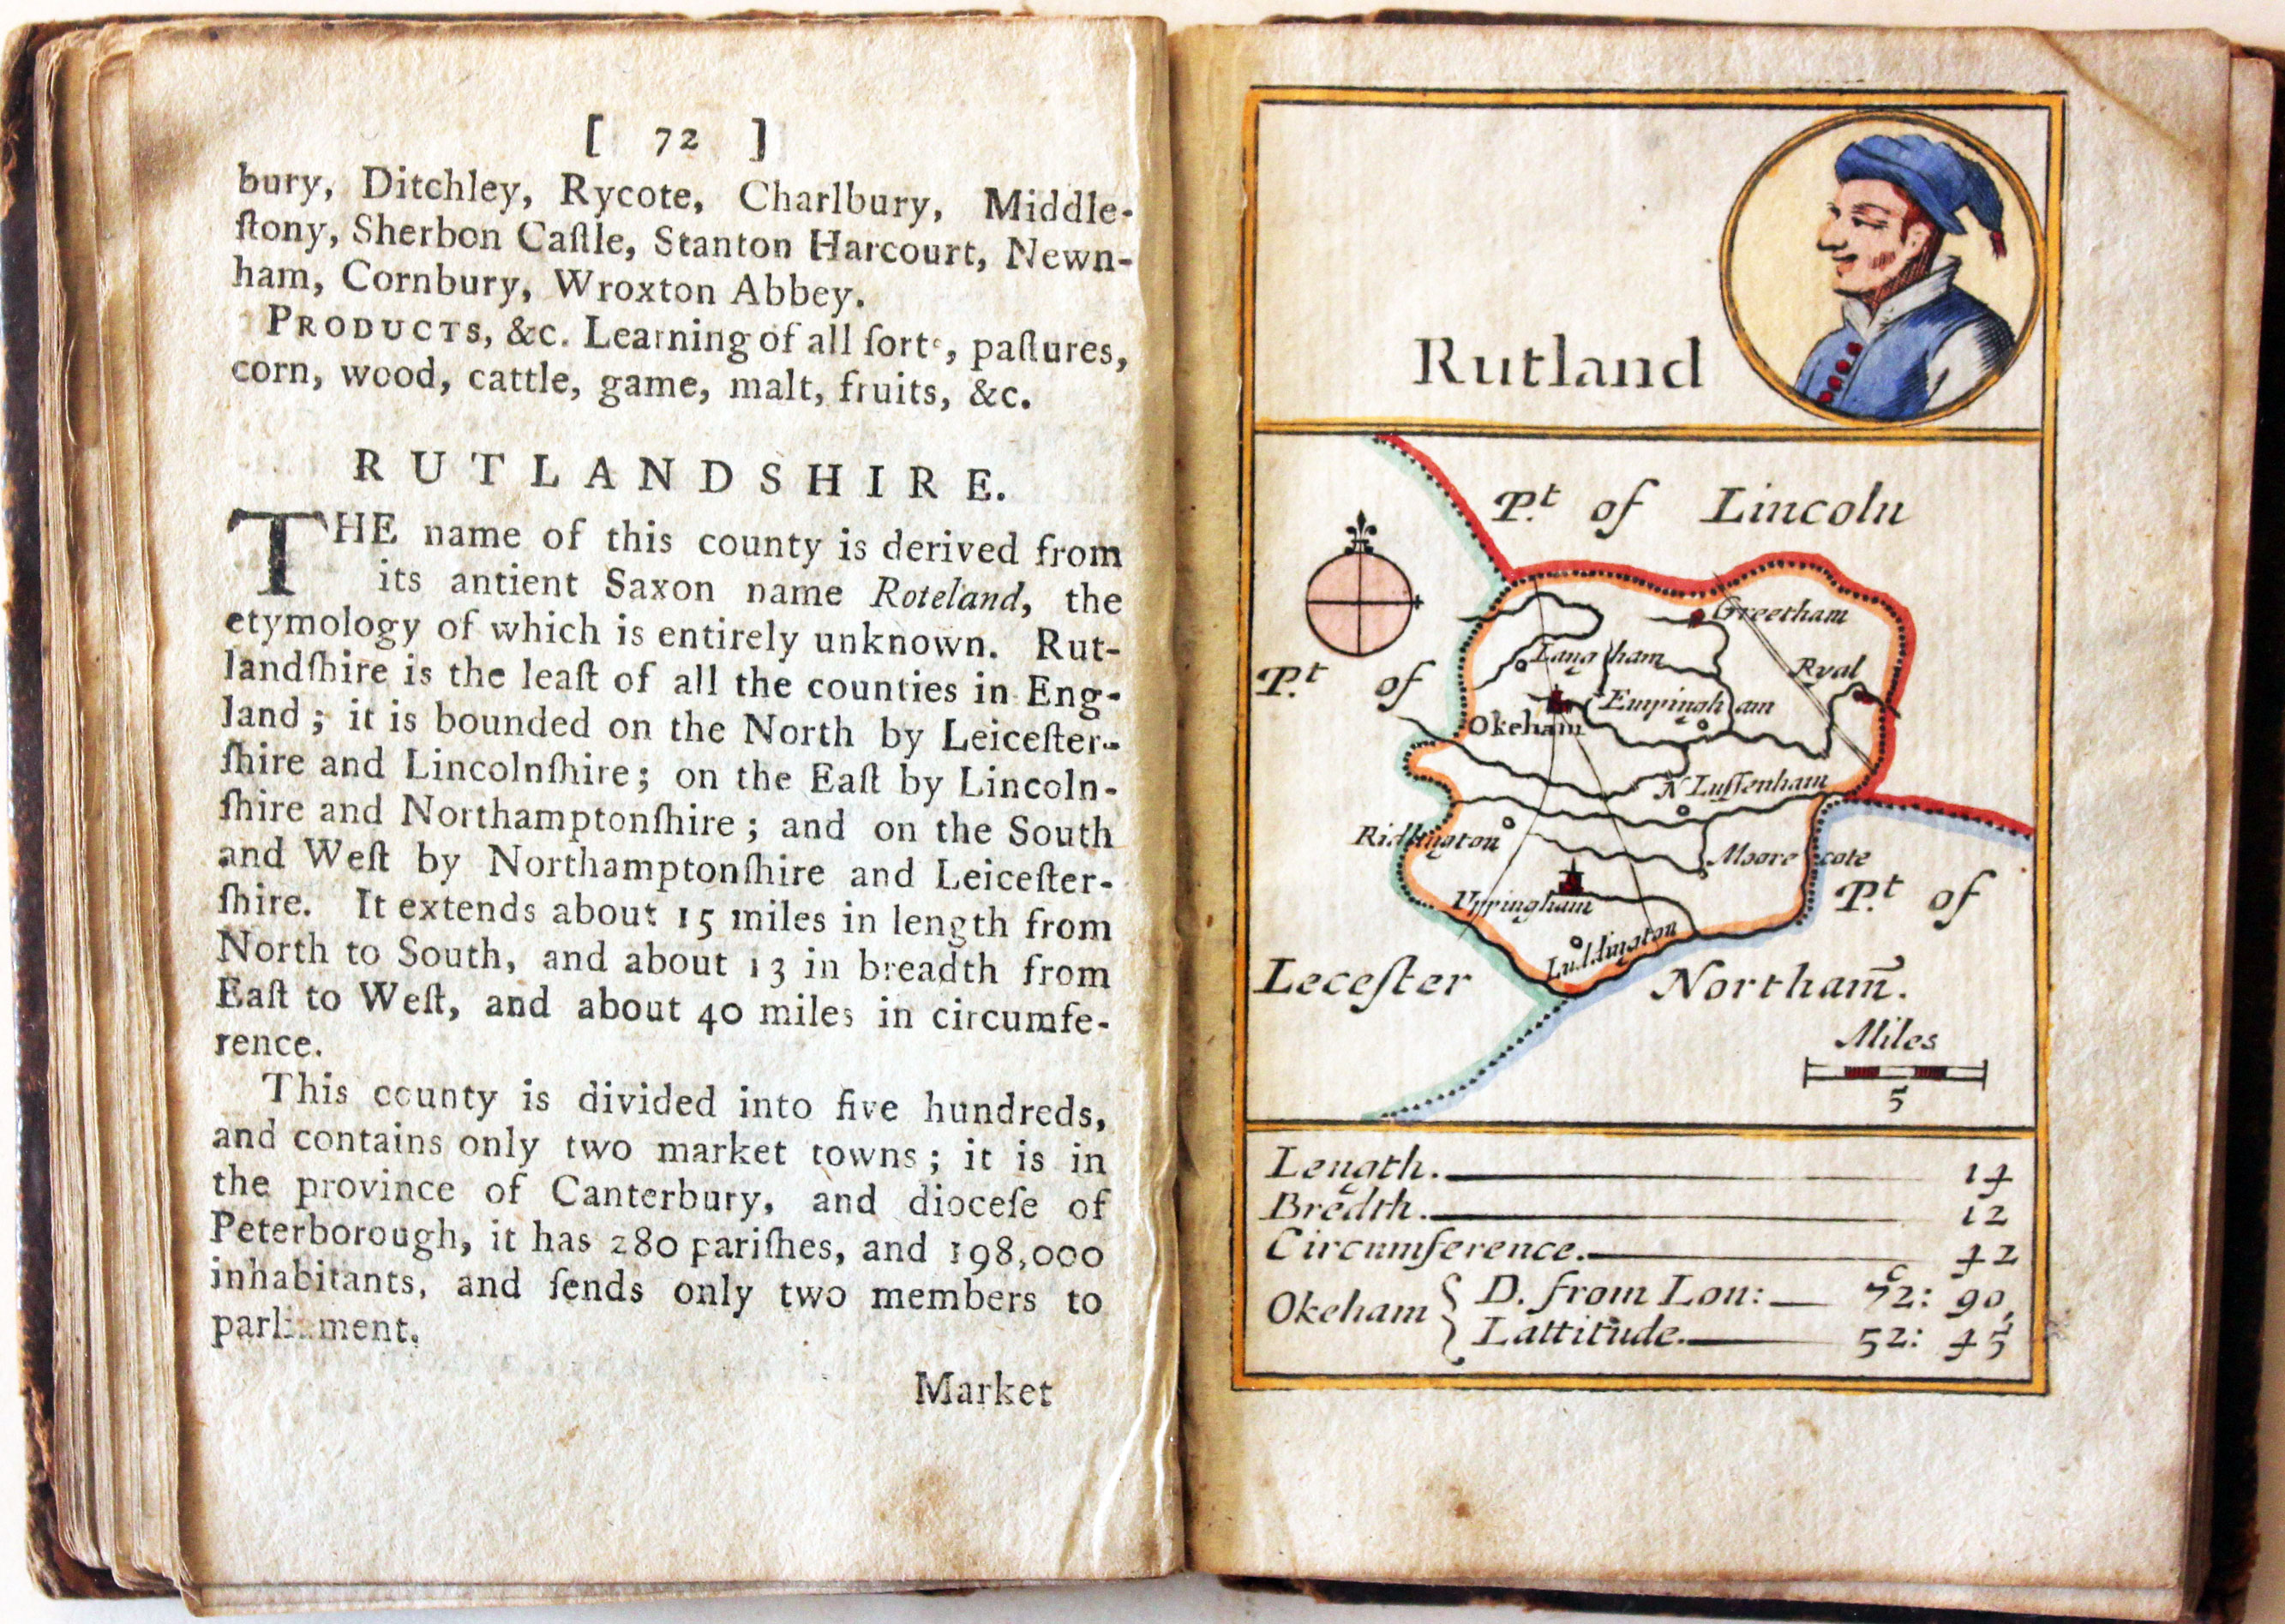 [ 72 ]
bury, Ditchley, Rycote, Charlbury, Middle-
ſtony, Sherbon Caſtle, Stanton Harcourt, Newn-
ham, Cornbury, Wroxton Abbey.
PRODUCTS, &c. Learning of all ſorts, paſtures,
corn, wood, cattle, game, malt, fruits, &c.
RUTLANDSHIRE.
THE name of this county is derived from
its antient Saxon name Roteland, the
etymology of which is entirely unknown. Rut-
landſhire is the leaſt of all the counties in Eng-
land; it is bounded on the North by Leiceſter-
ſhire and Lincolnſhire; on the Eaſt by Lincoln-
ſhire and Northamptonſhire; and on the South
and Weſt by Northamptonſhire and Leiceſter-
ſhire. It extends about 15 miles in length from
North to South, and about 13 in breadth from
Eaſt to Weſt, and about 40 miles in circumfe-
rence.
This county is divided into five hundreds,
and contains only two market towns; it is in
the province of Canterbury, and dioceſe of
Peterborough, it has 280 pariſhes, and 198,000
inhabitants, and ſends only two members to
parliament.
Market
Rutland
P.t of Lincoln
Greetham
Langham
Ryal
P.t of
Empingham
Okeham
N Luffenham
Ridlington
Moorecote
P.t of
Uppingham
Luddington
Leceſter
Northam̄.
Miles
5
Length. 14
Bredth. 12
Circumference. 42
Okeham { D. from Lon: 72: 90
Lattitude. 52: 45